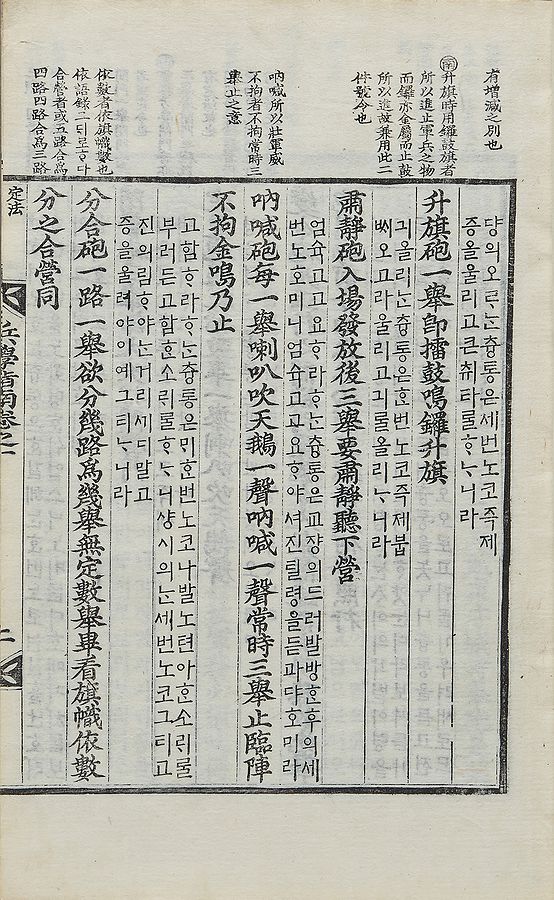 有增減之別也
㊞升旗時用鑼鼓旗者
所以進止軍兵之物
而鑼亦金屬而止鼓
所以進故兼用此二
件號令也
吶喊所以壯軍威
不拘者不拘常時三
擧止之意
依數者依旗幟數也
合營者或五路合爲
四路四路合爲三路
당의오
증을울리고큰취타
升旗砲一擧卽擂鼓鳴鑼升旗
긔올리
ᄡᅵ오고라울리고긔ᄅᆞᆯ올리ᄂᆞ니라
肅靜砲入場發放後三擧要肅靜聽下營
엄슉고고요ᄒᆞ라ᄒᆞᄂᆞᆫ춍통은교쟝의드러발방ᄒᆞᆫ후의세
번노호미니엄슉고고요ᄒᆞ야셔진틸령을듣과댜호미라
吶喊砲每一擧喇叭吹天鵝一聲吶喊一聲常時三擧止臨陣
不拘金鳴乃止
고함ᄒᆞ라ᄒᆞᄂᆞᆫ춍통은ᄆᆡᄒᆞᆫ번노코나발노텬아ᄒᆞᆫ소ᄅᆡᄅᆞᆯ
부러든고함ᄒᆞᆫ소ᄅᆡᄅᆞᆯᄒᆞᄂᆞ니샹시의ᄂᆞᆫ세번노코그티고
진의림ᄒᆞ야ᄂᆞᆫ거리세디말고
증을울려야이예그티ᄂᆞ니라
分合砲一路一擧欲分幾路爲幾擧無定數擧畢看旗幟依數
分之合營同
定法
兵學指南卷之一
二